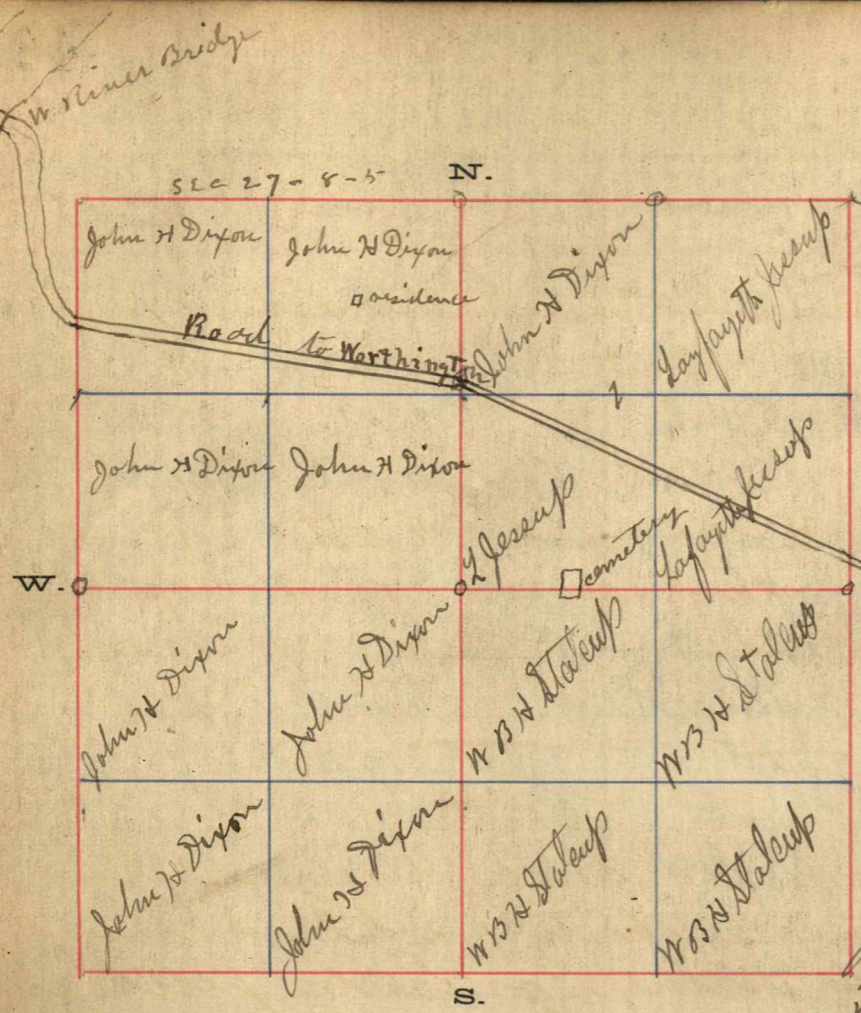 W River Bridge
N.
SEC 27-8-5
John H Dixon
John H Dixon
John H Dixon
Layfayeth Jessup
residence
Road to Worthington
John H Dixon
John H Dixon
L Jessup
cemetery
Lafayeth Jessup
W.
John H Dixon
John H Dixon
W B H Stalcup
W B H Stalcup
John H Dixon
John H Dixon
W B H Stalcup
W B H Stalcup
S.